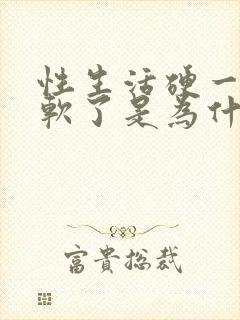 性生活硬一
軟了是為什
富貴总裁